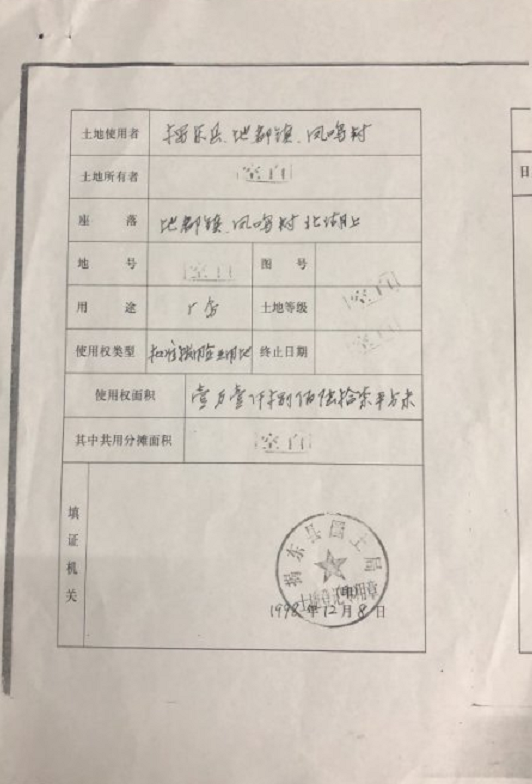 土地使用者 揭东县、地都镇、凤鸣村
土地所有者 空白
座落 地都镇、凤鸣村北湖上
地号 空白 图号 空白
用途 厂房 土地等级 空白
使用权类型 终止日期
使用权面积 壹万壹仟 佰陆拾柒平方米
其中共用分摊面积 空白
填证机关
揭东县国土局
土地登记专用章
(印)
1998年12月8日
日